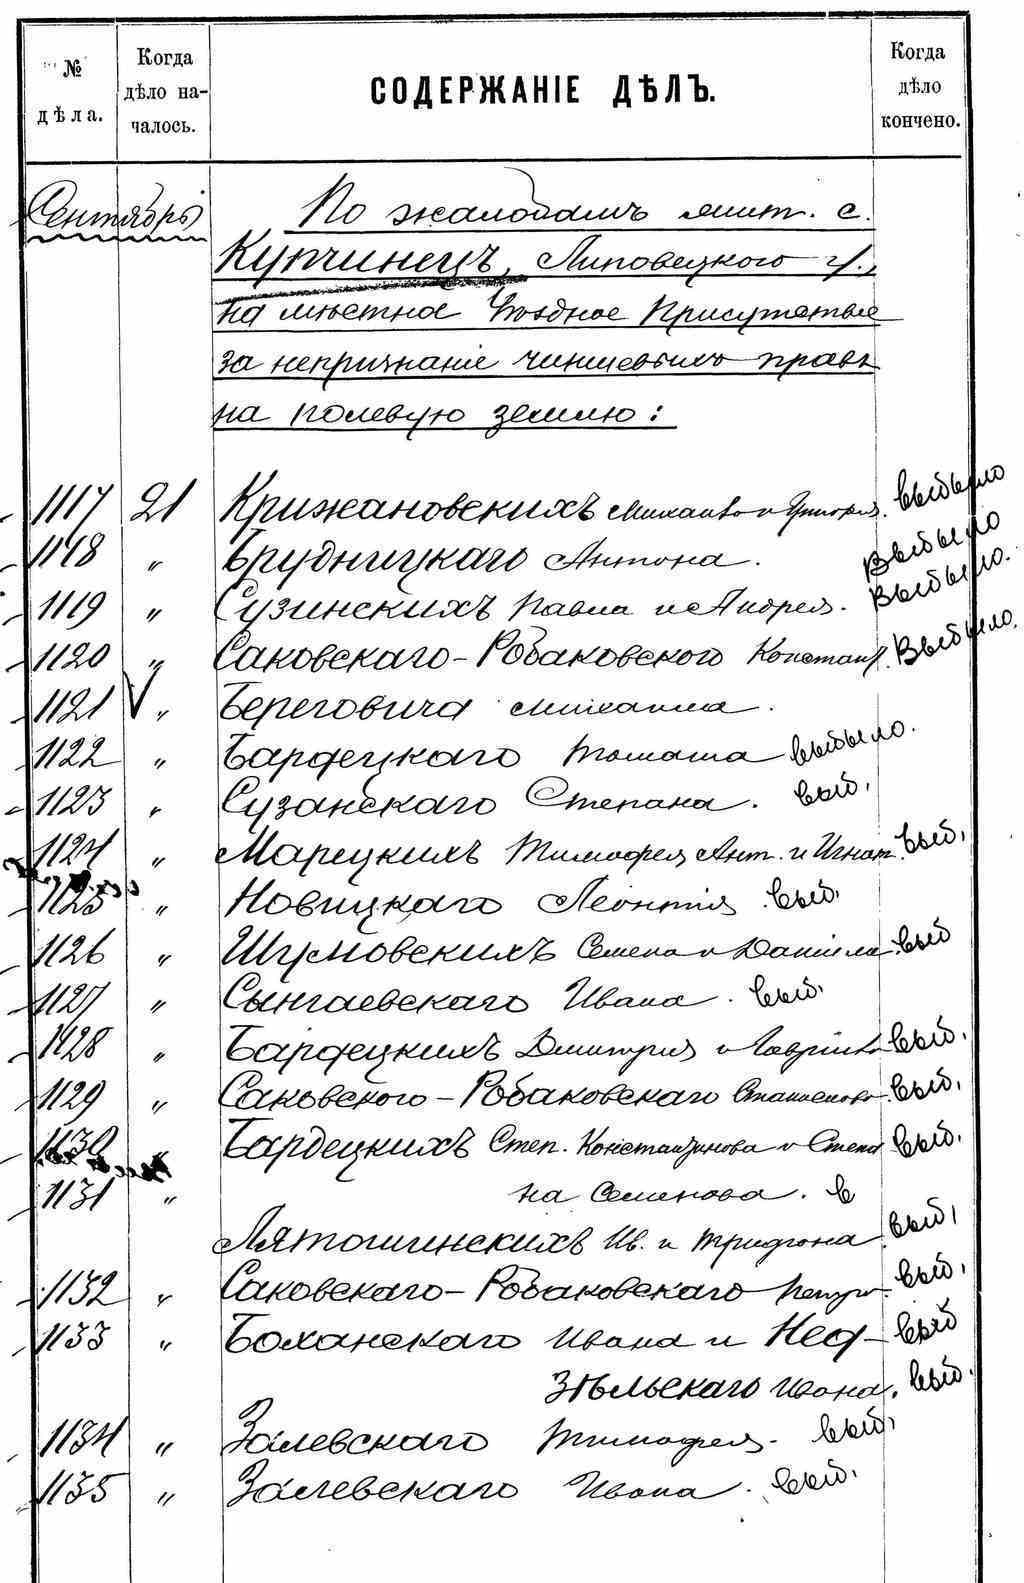 № дѣла.
Когда дѣло на-
чалось.
СОДЕРЖАНІЕ ДѢЛЪ.
Когда дѣло кончено.
Сентябрь
По жалобамъ жит. с.
Купчинецъ, Липовецкого у.,
на мѣстное Уѣздное Присутствіе
за непризнаніе чиншевыхъ правъ
на полевую землю:
1117 21 Крижановскихъ Михаила и Григорія. выбыло
1118 „ Брудницкаго Антона. Выбыло
1119 „ Сузинскихъ Павла и Андрея. Выбыло.
1120 „ Саковскаго-Робаковского Констант. Выбыло.
1121 V „ Береговича Михаила.
1122 „ Бардецкаго Томаша выбыло.
1123 „ Сузанскаго Степана. выб.
1124 „ Марецкихъ Тимофея, Ант. и Игнат. выб.
1125 „ Новицкаго Леонтія выб.
1126 „ Шумовскихъ Семена и Даніила выб
1127 „ Сынгаевскаго Ивана. выб.
1128 „ Бардецкихъ Дмитрия и выб.
1129 „ Саковского-Робаковскаго выб.
1130 „ Бардецкихъ Степ. Константинова и Степа выб.
1131 „ на Семенова. в
Лятошинскихъ Ив. и Трифона выб.
1132 „ Саковскаго-Робаковскаго Петра. выб.
1133 „ Боханскаго Ивана и Нед- выб
зѣльскаго Ивана. выб.
1134 „ Залевскаго Тимофея. выб.
1135 „ Залевскаго Ивана. выб.